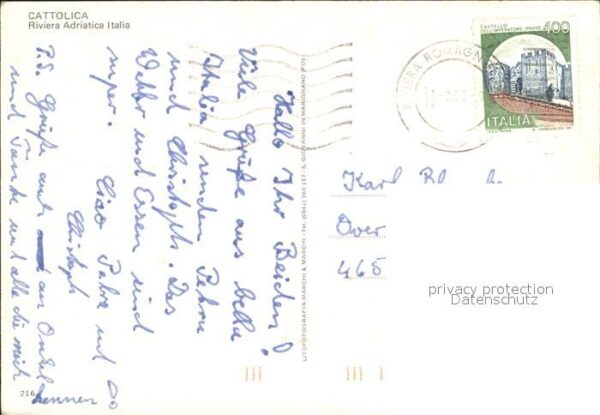 CATTOLICA
Riviera Adriatica Italia
Hallo Ihr Beiden!
Viele Grüße aus bella
Italia senden Petra
und Christoph. Das
Wetter und Essen sind
super.
Ciao Petra und
Christoph
P.S. Grüße auch an Onkel
und Tante und alle die mich
kennen
216
LITOFOTOGRAFIA MARCHI & MARCHI - Tel. (0541) 963 137 - S. GIOVANNI IN MARIGNANO (FO)
RIVIERA ROMAGN
CASTELLO
DELL'IMPERATORE - PRATO
400
ITALIA
Karl
Over
465
privacy protection
Datenschutz